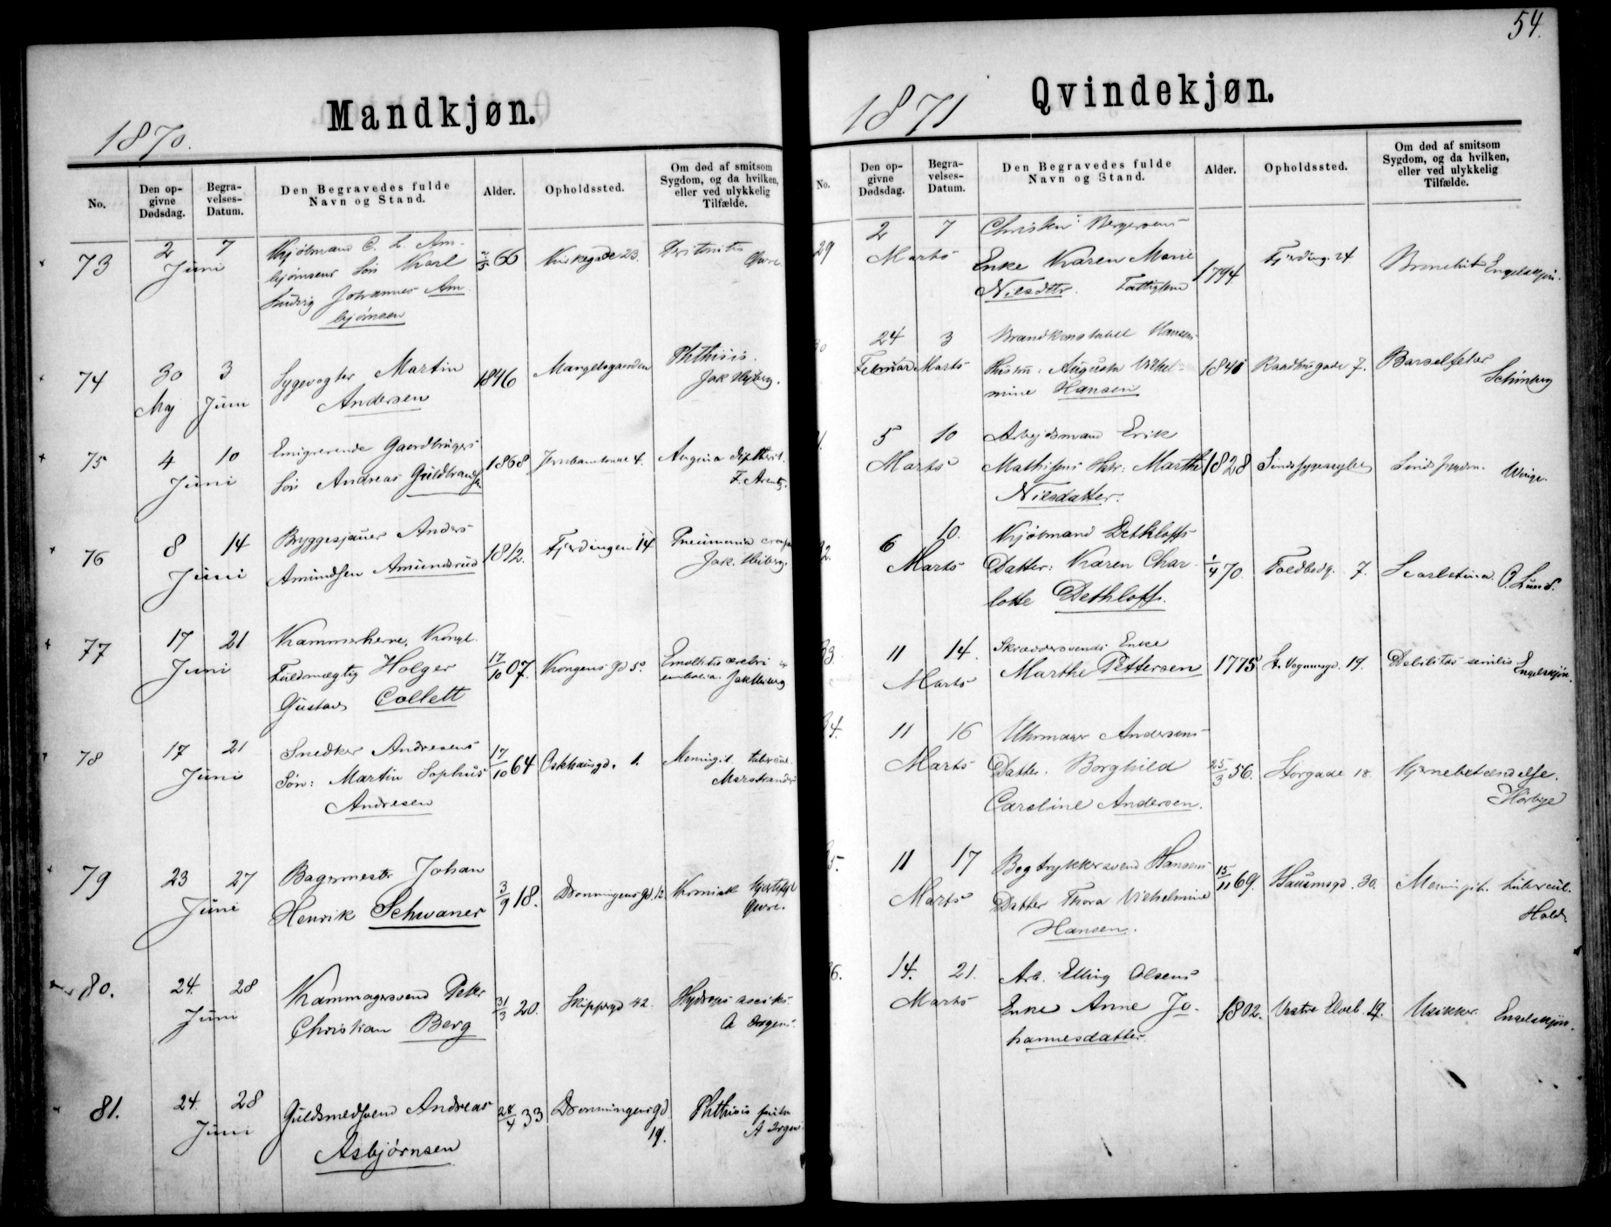 54.
Mandkjøn.
1870.
No.
Den opgivne Dødsdag.
Begravelses-Datum.
Den Begravedes fulde Navn og Stand.
Alder.
Opholdssted.
Om død af smitsom Sygdom, og da hvilken, eller ved ulykkelig Tilfælde.
73
2 Juni
7
Kjøbmand C. L. Am-
bjørnsens Søn Karl
Ludvig Johannes Am
bjørnsen
66
23.
74
30 Maj
3 Juni
Sygevogter Martin
Andersen
1846
Mangelsgaarden
Phthisis.
Jak Heiberg.
75
4 Juni
10
Emigrerende Gaardbrugers
Søn Andreas Guldbrands
1868
4.
Angina diphtherit.
F. Arentz.
76
8 Juni
14
Bryggesjauer Anders
Amundsen Amundsrud
1812.
Fjerdingen 14
Pneumonia
Jak. Heiberg
77
17 Juni
21
Kammerherre, Kongl.
Fuldmægtig Holger
Gustav Collett
17/10 07.
Kongens Gd
Jak Heiberg
78
17 Juni
21
Snedker Andresens
Søn: Martin Sophus
Andresen
17/10 64
1.
Meningit. tubercul.
79
23 Juni
27
Bagermester Johan
Henrik Schwaner
3/9 18.
Dronningens gd. 12.
80.
24. Juni
28
Kammagersvend Peter
Christian Berg
31/3 20.
Skippergd 42.
Hydrops
81.
24. Juni
28
Guldsmedsvend Andreas
Asbjørnsen
28/4 33
Dronningens gd
19.
Phthisis
Qvindekjøn.
1871
No.
Den opgivne Dødsdag.
Begravelses-Datum.
Den Begravedes fulde Navn og Stand.
Alder.
Opholdssted.
Om død af smitsom Sygdom, og da hvilken, eller ved ulykkelig Tilfælde.
29
2 Marts
7
Christen Bergersens
Enke Karen Marie
Nilsdtr. Fattiglem
1794
Fjerding. 24
Engelskjøn.
24 Februar
3 Marts
Brandkonstabel Hansens
Hustru: Augusta Vilhel-
mine Hansen
1841
Raadhusgade 7.
Barselfeber
5 Marts
10
Arbejdsmand Erik
Mathisens Hstr: Marthe
Nilsdatter.
1828
Sindssygeasylet
Winge.
6 Marts
10.
Kjøbmand Dethloffs
Datter: Karen Char-
lotte Dethloff.
1/4 70.
Toldbodg. 7.
Scarlatina. O. Lund.
11 Marts
14.
Skræddersvends Enke
Marthe Pettersen
1775
19.
Debilitas senilis
Engelskjøn.
34.
11 Marts
16
Uhrmager Andersens
Datter: Borghild
Caroline Andersen.
25/3 56.
Storgade 18.
Hjernebetændelse.
Hørbye
11 Marts
17
Bogtrykkersvend Hansens
Datter Thora Vilhelmine
Hansen.
15/11 69.
Hausmsgd. 30.
Meningit. tubercul.
Holst
14. Marts
21.
Arb. Elling Olsens
Enke Anne Jo-
hannesdatter
1802.
Vestre Elveb. 19.
Usikker.
Engelskjøn.